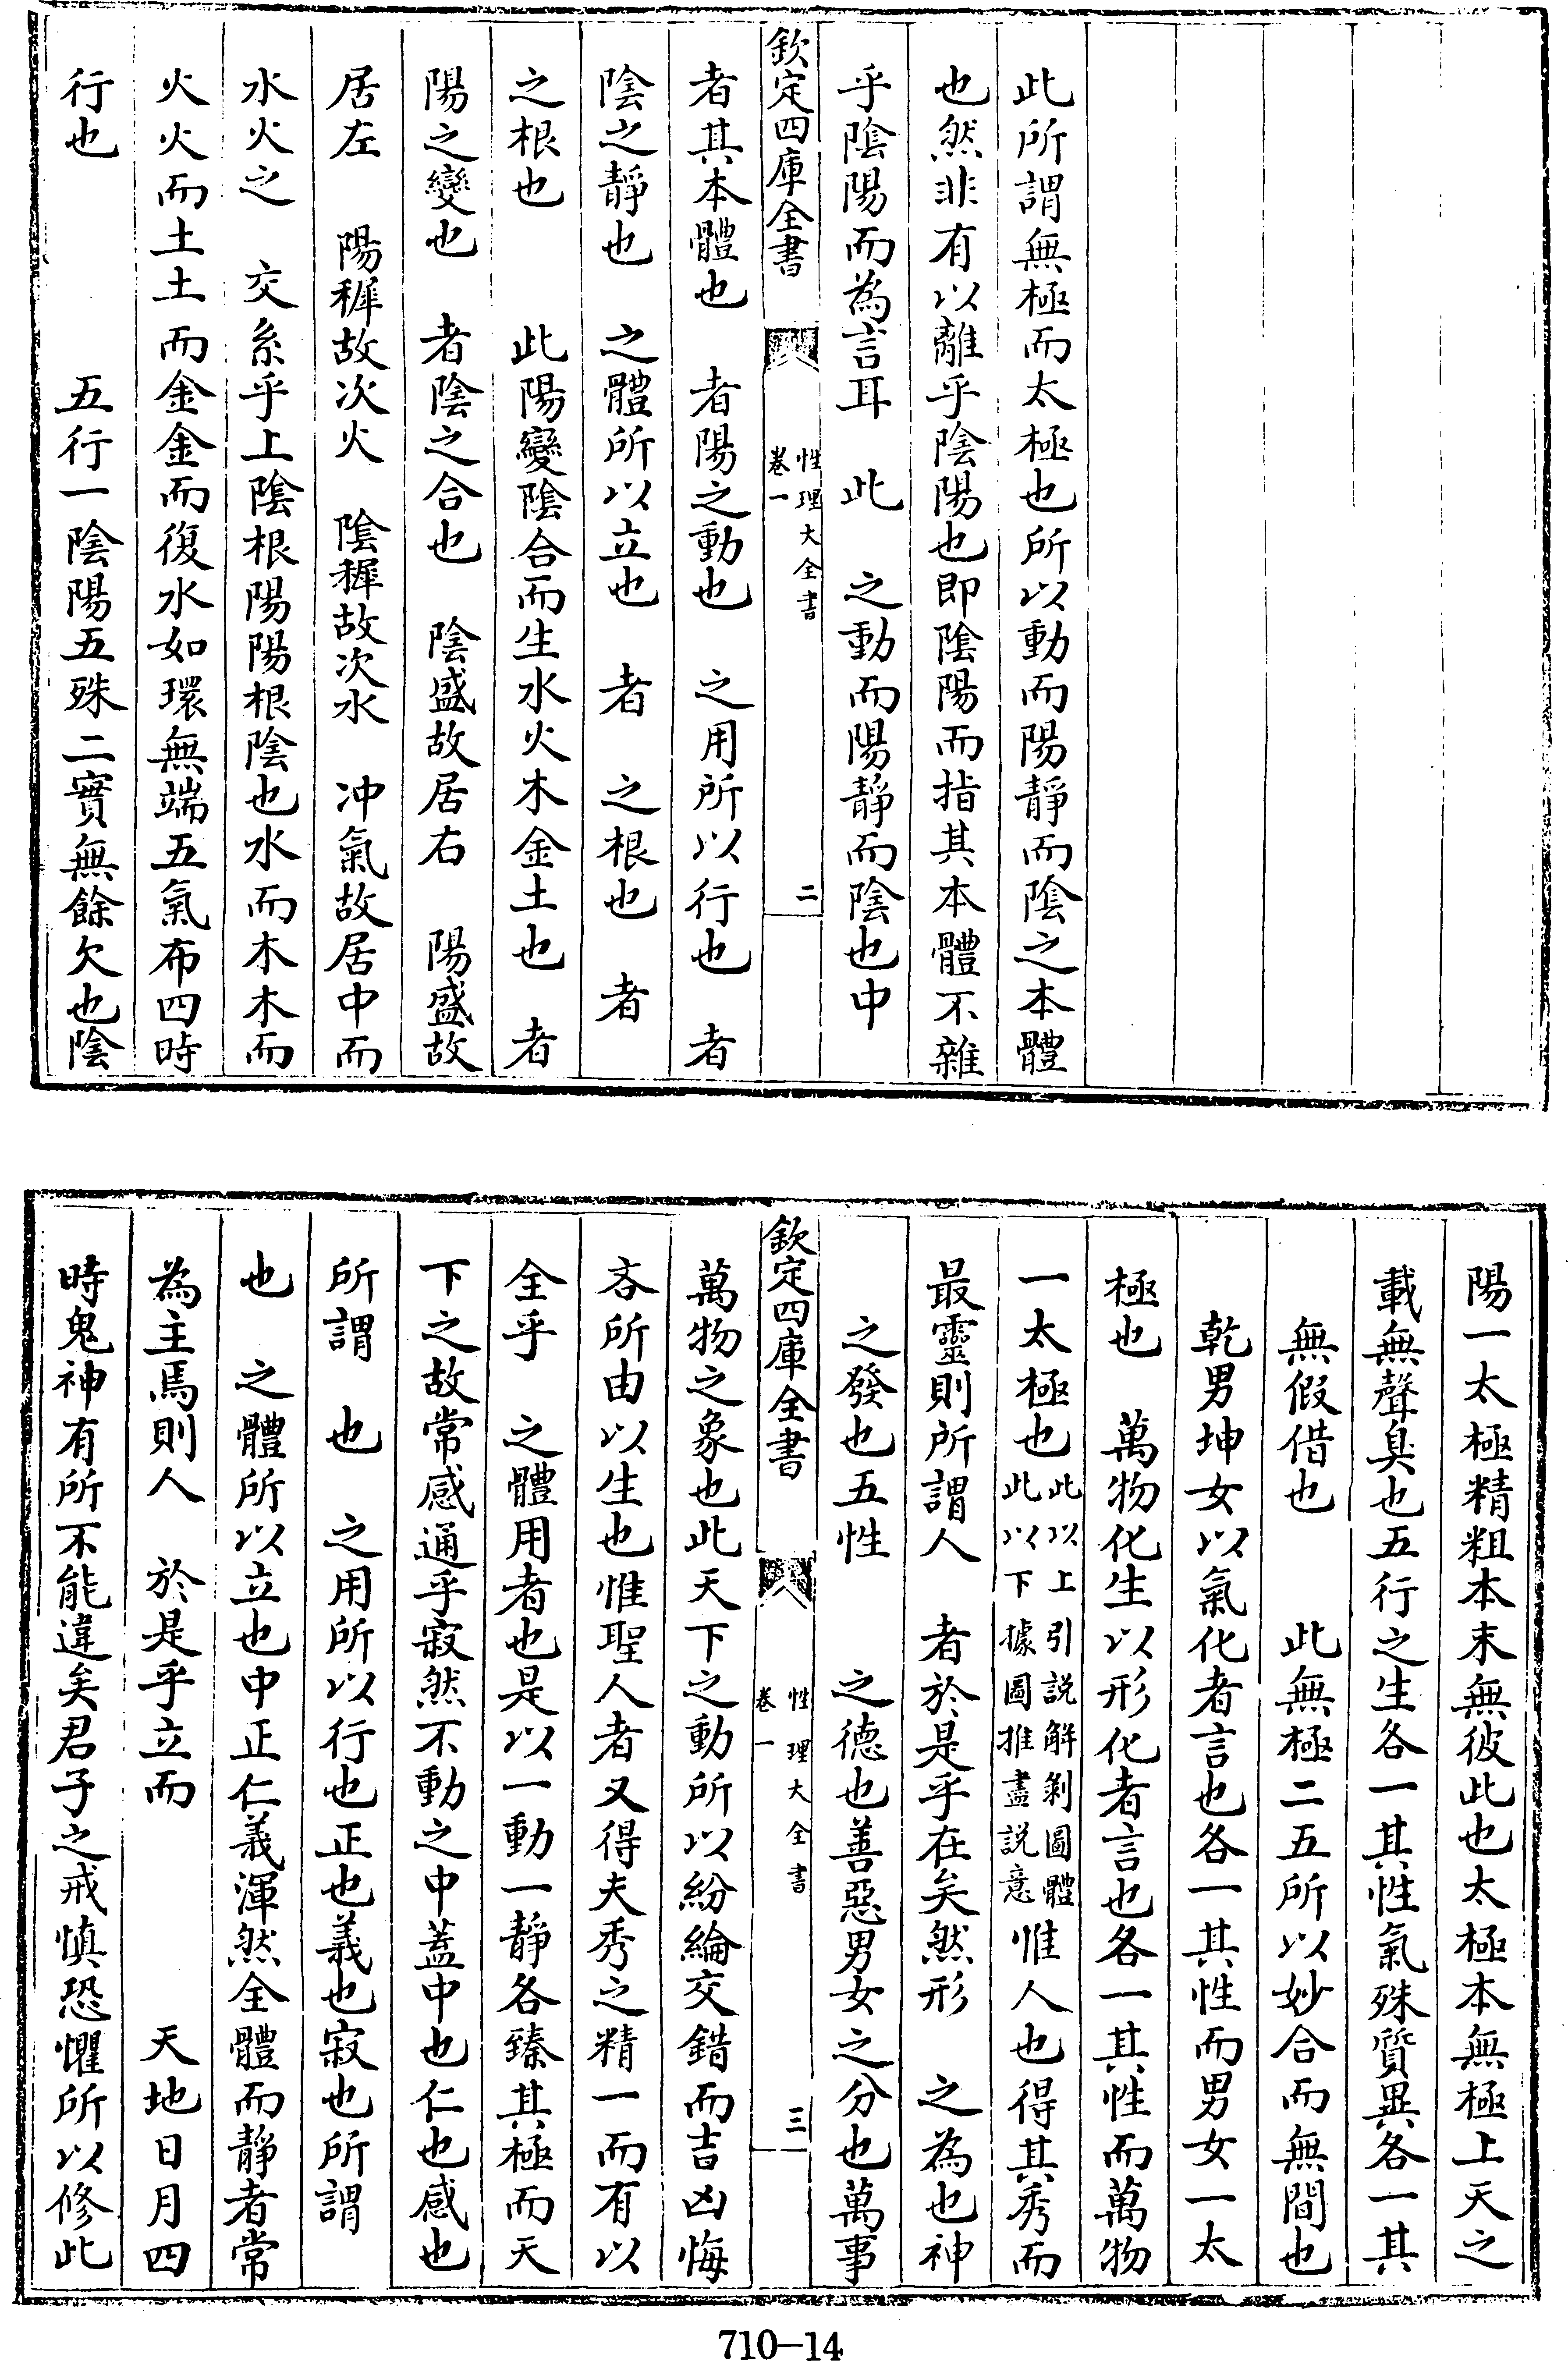 此所謂無極而太極也所以動而陽靜而陰之本體
也然非有以離乎陰陽也即陰陽而指其本體不雜
乎陰陽而為言耳　此　之動而陽靜而陰也中
欽定四庫全書　性理大全書　卷一　二
者其本體也　者陽之動也　之用所以行也　者
陰之靜也　之體所以立也　者　之根也　者
之根也　　此陽變陰合而生水火木金土也　者
陽之變也　者陰之合也　陰盛故居右　陽盛故
居左　陽穉故次火　陰穉故次水　冲氣故居中而
水火之　交系乎上陰根陽陽根陰也水而木木而
火火而土土而金金而復水如環無端五氣布四時
行也　　　　五行一陰陽五殊二實無餘欠也陰
陽一太極精粗本末無彼此也太極本無極上天之
載無聲臭也五行之生各一其性氣殊質異各一其
　無假借也　　此無極二五所以妙合而無間也
　乾男坤女以氣化者言也各一其性而男女一太
極也　萬物化生以形化者言也各一其性而萬物
一太極也此以上引說解剝圖體此以下據圖推盡說意惟人也得其秀而
最靈則所謂人　者於是乎在矣然形　之為也神
　之發也五性　　之德也善惡男女之分也萬事
欽定四庫全書　性理大全書　卷一　三
萬物之象也此天下之動所以紛綸交錯而吉凶悔
吝所由以生也惟聖人者又得夫秀之精一而有以
全乎　之體用者也是以一動一靜各臻其極而天
下之故常感通乎寂然不動之中蓋中也仁也感也
所謂　也　之用所以行也正也義也寂也所謂
也　之體所以立也中正仁義渾然全體而靜者常
為主焉則人　於是乎立而　　　　天地日月四
時鬼神有所不能違矣君子之戒慎恐懼所以修此
710-14